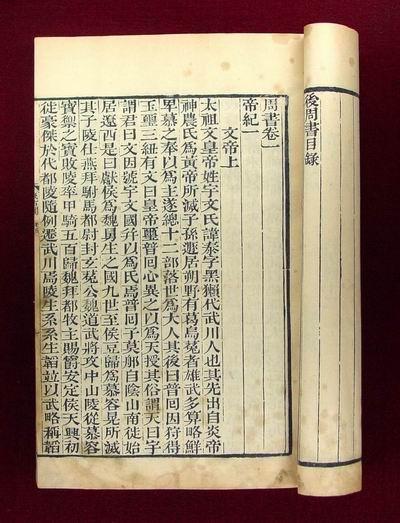 後周書目錄
周書卷一
帝紀一
文帝上
太祖文皇帝姓宇文氏諱泰字黑獺代武川人也其先出自炎帝
神農氏爲黃帝所滅子孫遯居朔野有葛烏菟者雄武多算略鮮
卑慕之奉以爲主遂總十二部落世爲大人其後曰普回因狩得
玉璽三紐有文曰皇帝璽普回心異之以爲天授其俗謂天曰宇
謂君曰文因號宇文國并以爲氏焉普回子莫那自陰山南徙始
居遼西是曰獻侯爲魏舅生之國九世至侯豆歸爲慕容晃所滅
其子陵仕燕拜駙馬都尉封玄菟公魏道武將攻中山陵從慕容
寶禦之寶敗陵率甲騎五百歸魏拜都牧主賜爵安定侯天興初
徙豪傑於代都陵隨例遷武川焉陵生系系生韜並以武略稱韜